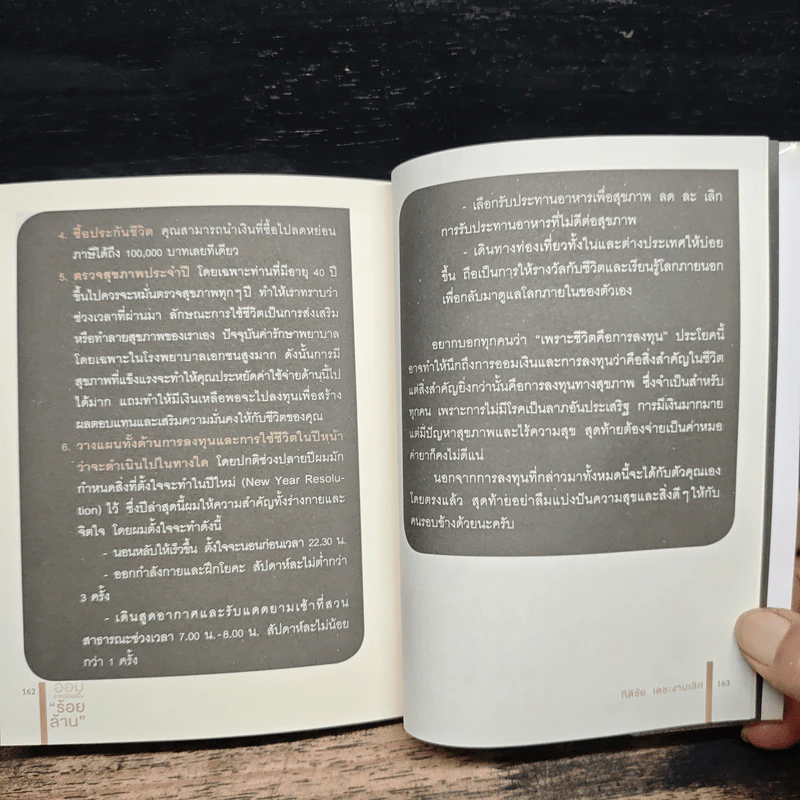 4. ซื้อประกันชีวิต คุณสามารถนำเงินที่ซื้อไปลดหย่อน
ภาษีได้ถึง 100,000 บาทเลยทีเดียว
5. ตรวจสุขภาพประจำปี โดยเฉพาะท่านที่มีอายุ 40 ปี
ขึ้นไปควรจะหมั่นตรวจสุขภาพทุกๆ ปี ทำให้เราทราบว่า
ช่วงเวลาที่ผ่านมา ลักษณะการใช้ชีวิตเป็นการส่งเสริม
หรือทำลายสุขภาพของเราเอง ปัจจุบันค่ารักษาพยาบาล
โดยเฉพาะในโรงพยาบาลเอกชนสูงมาก ดังนั้นการมี
สุขภาพที่แข็งแรงจะทำให้คุณประหยัดค่าใช้จ่ายด้านนี้ไป
ได้มาก แถมทำให้มีเงินเหลือพอจะไปลงทุนเพื่อสร้าง
ผลตอบแทนและเสริมความมั่นคงให้กับชีวิตของคุณ
6. วางแผนทั้งด้านการลงทุนและการใช้ชีวิตในปีหน้า
ว่าจะดำเนินไปในทางใด โดยปกติช่วงปลายปีผมมัก
กำหนดสิ่งที่ตั้งใจจะทำในปีใหม่ (New Year Resolu-
tion) ไว้ ซึ่งปีล่าสุดนี้ผมให้ความสำคัญทั้งร่างกายและ
จิตใจ โดยผมตั้งใจจะทำดังนี้
- นอนหลับให้เร็วขึ้น ตั้งใจจะนอนก่อนเวลา 22.30 น.
- ออกกำลังกายและฝึกโยคะ สัปดาห์ละไม่ต่ำกว่า
3 ครั้ง
- เดินสูดอากาศและรับแดดยามเช้าที่สวน
สาธารณะช่วงเวลา 7.00 น.-8.00 น. สัปดาห์ละไม่น้อย
กว่า 1 ครั้ง
162
ออม
"ร้อย
ล้าน"
- เลือกรับประทานอาหารเพื่อสุขภาพ ลด ละ เลิก
การรับประทานอาหารที่ไม่ดีต่อสุขภาพ
- เดินทางท่องเที่ยวทั้งในและต่างประเทศให้บ่อย
ขึ้น ถือเป็นการให้รางวัลกับชีวิตและเรียนรู้โลกภายนอก
เพื่อกลับมาดูแลโลกภายในของตัวเอง
อยากบอกทุกคนว่า "เพราะชีวิตคือการลงทุน" ประโยคนี้
อาจทำให้นึกถึงการออมเงินและการลงทุนว่าคือสิ่งสำคัญในชีวิต
แต่สิ่งสำคัญยิ่งกว่านั้นคือการลงทุนทางสุขภาพ ซึ่งจำเป็นสำหรับ
ทุกคน เพราะการไม่มีโรคเป็นลาภอันประเสริฐ การมีเงินมากมาย
แต่มีปัญหาสุขภาพและไร้ความสุข สุดท้ายต้องจ่ายเป็นค่าหมอ
ค่ายาก็คงไม่ดีแน่
นอกจากการลงทุนที่กล่าวมาทั้งหมดนี้จะได้กับตัวคุณเอง
โดยตรงแล้ว สุดท้ายอย่าลืมแบ่งปันความสุขและสิ่งดีๆ ให้กับ
คนรอบข้างด้วยนะครับ
กิติชัย เตชะงามเลิศ
163